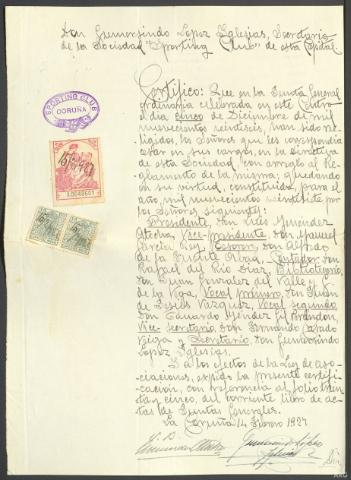 Don Gumersindo Lopez Iglesias, Secretario
de la Sociedad "Sporting Club" de esta Capital.
SPORTING CLUB
CORUÑA
Certifico: Que en la Junta General
ordinaria celebrada en este Centro
el dia cinco de Diciembre de mil
novecientos veintiseis, han sido ele-
gidos, los Señores que les correspondia
estar en sus cargos, en la Directiva
de esta Sociedad, con arreglo al Re-
glamento de la misma; quedando
en su virtud, constituida, para el
año, mil novecientos veintisiete por
los Señores siguientes:
Presidente, don
Vice-presidente, don Manuel
Rey, Tesorero, don Alfredo
de la Fuente Contador, don
Rafael del Rio Diaz, Bibliotecario,
don Juan Gonzalez del Valle y F.
de la Vega, Vocal primero, don Juan
de Vazquez, Vocal segundo
don Eduardo
Vice-secretario, don Fernando
y Secretario, don Gumersindo
Lopez Iglesias.
Y a los efectos de la Ley de Aso-
ciaciones, expido la presente certifi-
cacion, con referencia al folio trein-
ta, cinco, del corriente libro de ac-
tas de Juntas Generales.
La Coruña 14 Febrero 1927
V. B.
Gumersindo Lopez
Iglesias